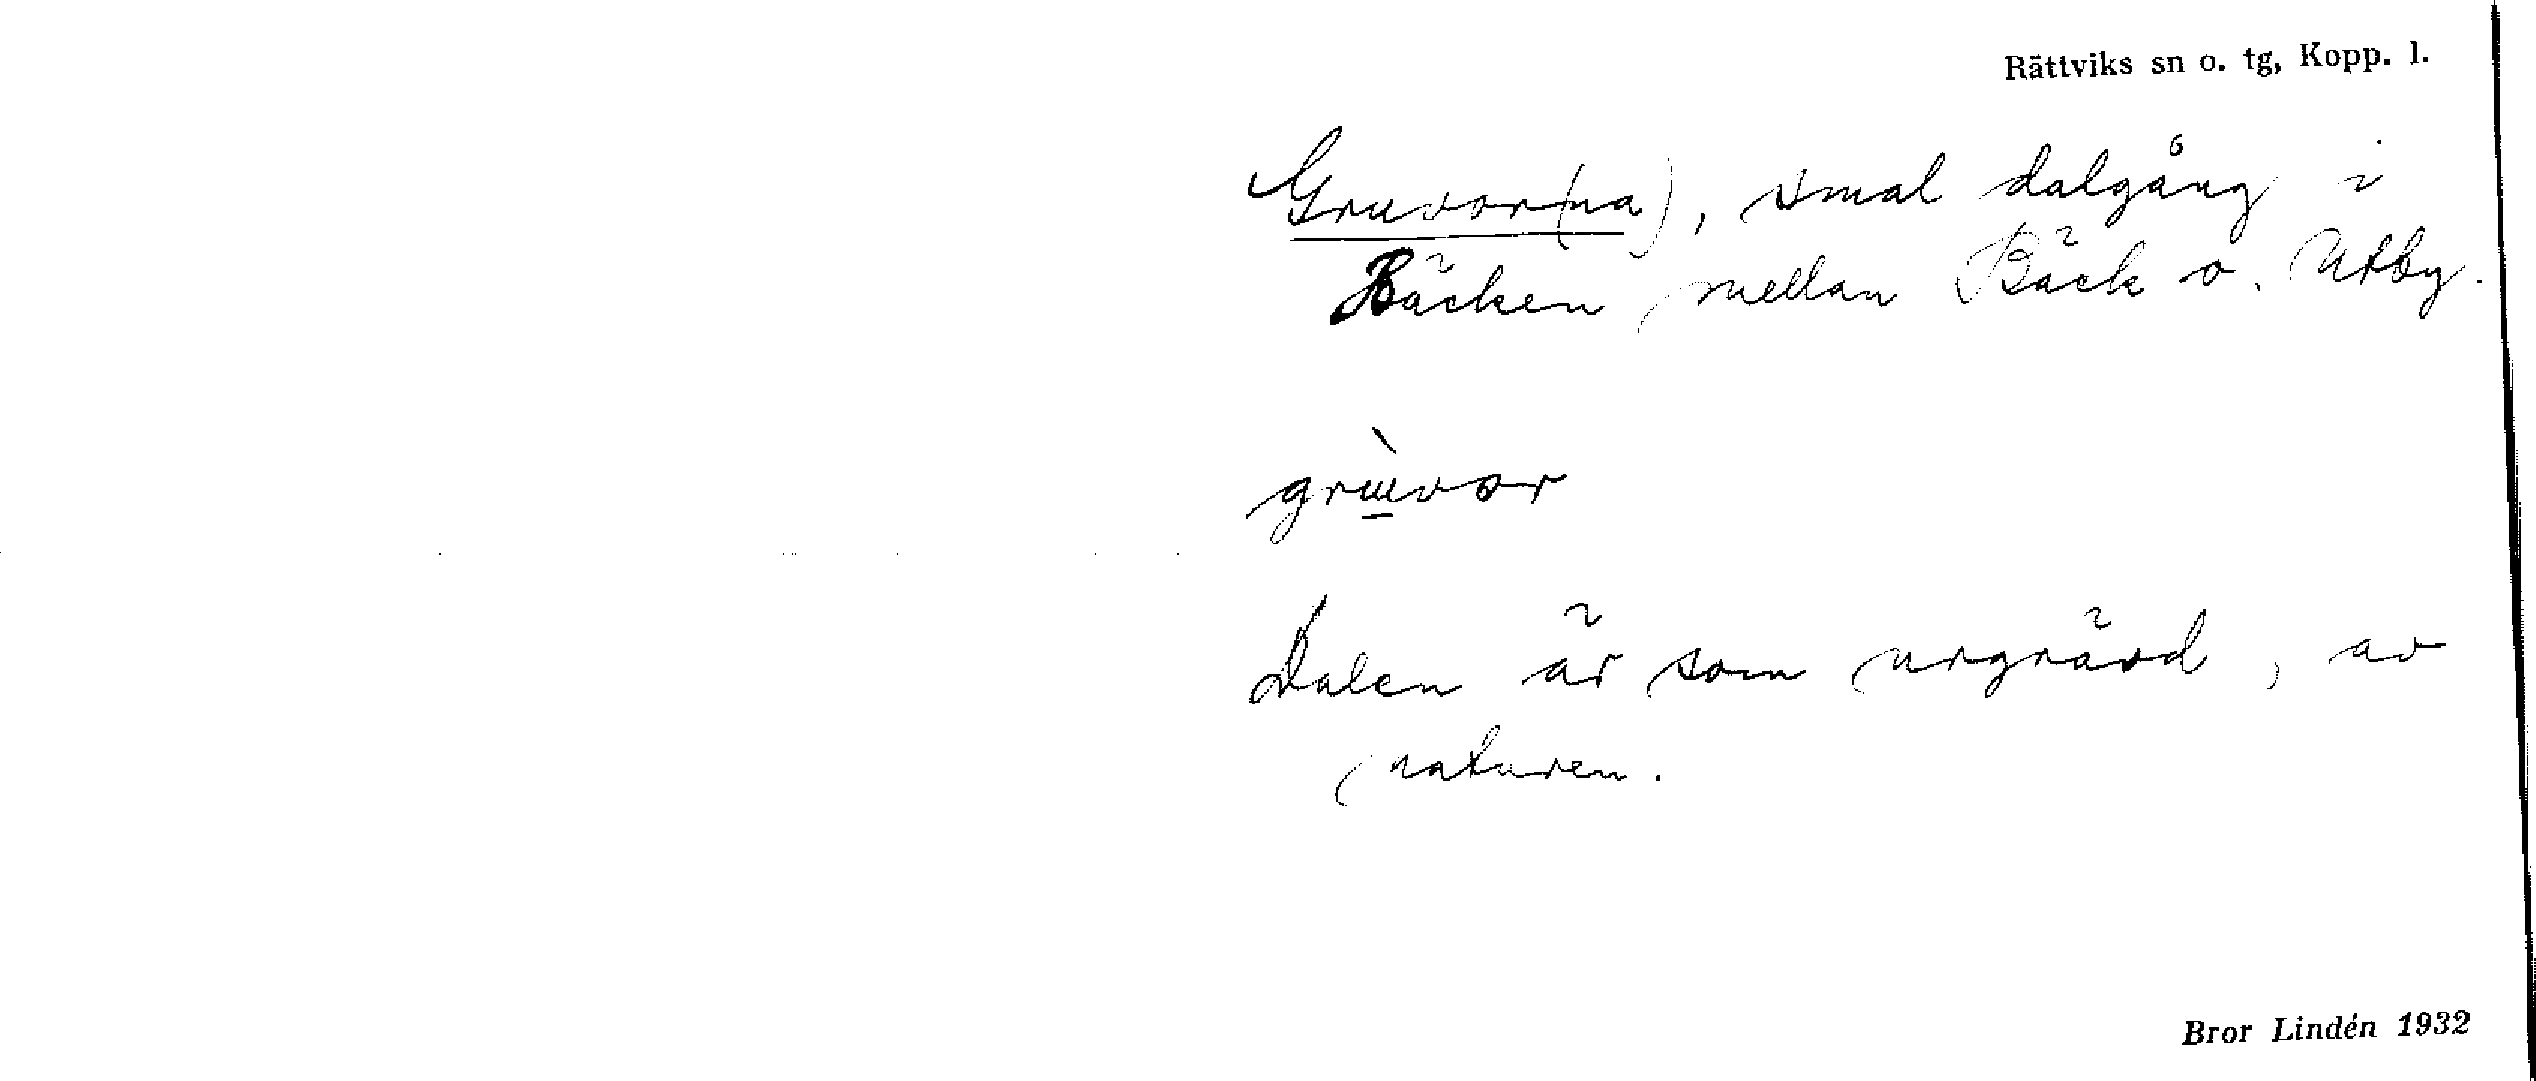 Rättviks sn o. tg, Kopp. l.
Gruvor(na), smal dalgång i
Bäcken mellan Bäck o. Utby.
grùvor
Dalen är som urgrävd, av
naturen.
Bror Lindén 1932